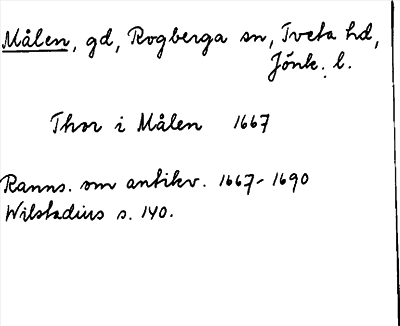 Målen, gd, Rogberga sn, Tveta hd,
Jönk. l.
Thor i Målen 1667
Ranns. om antikv. 1667-1690
Wilstadius s. 140.